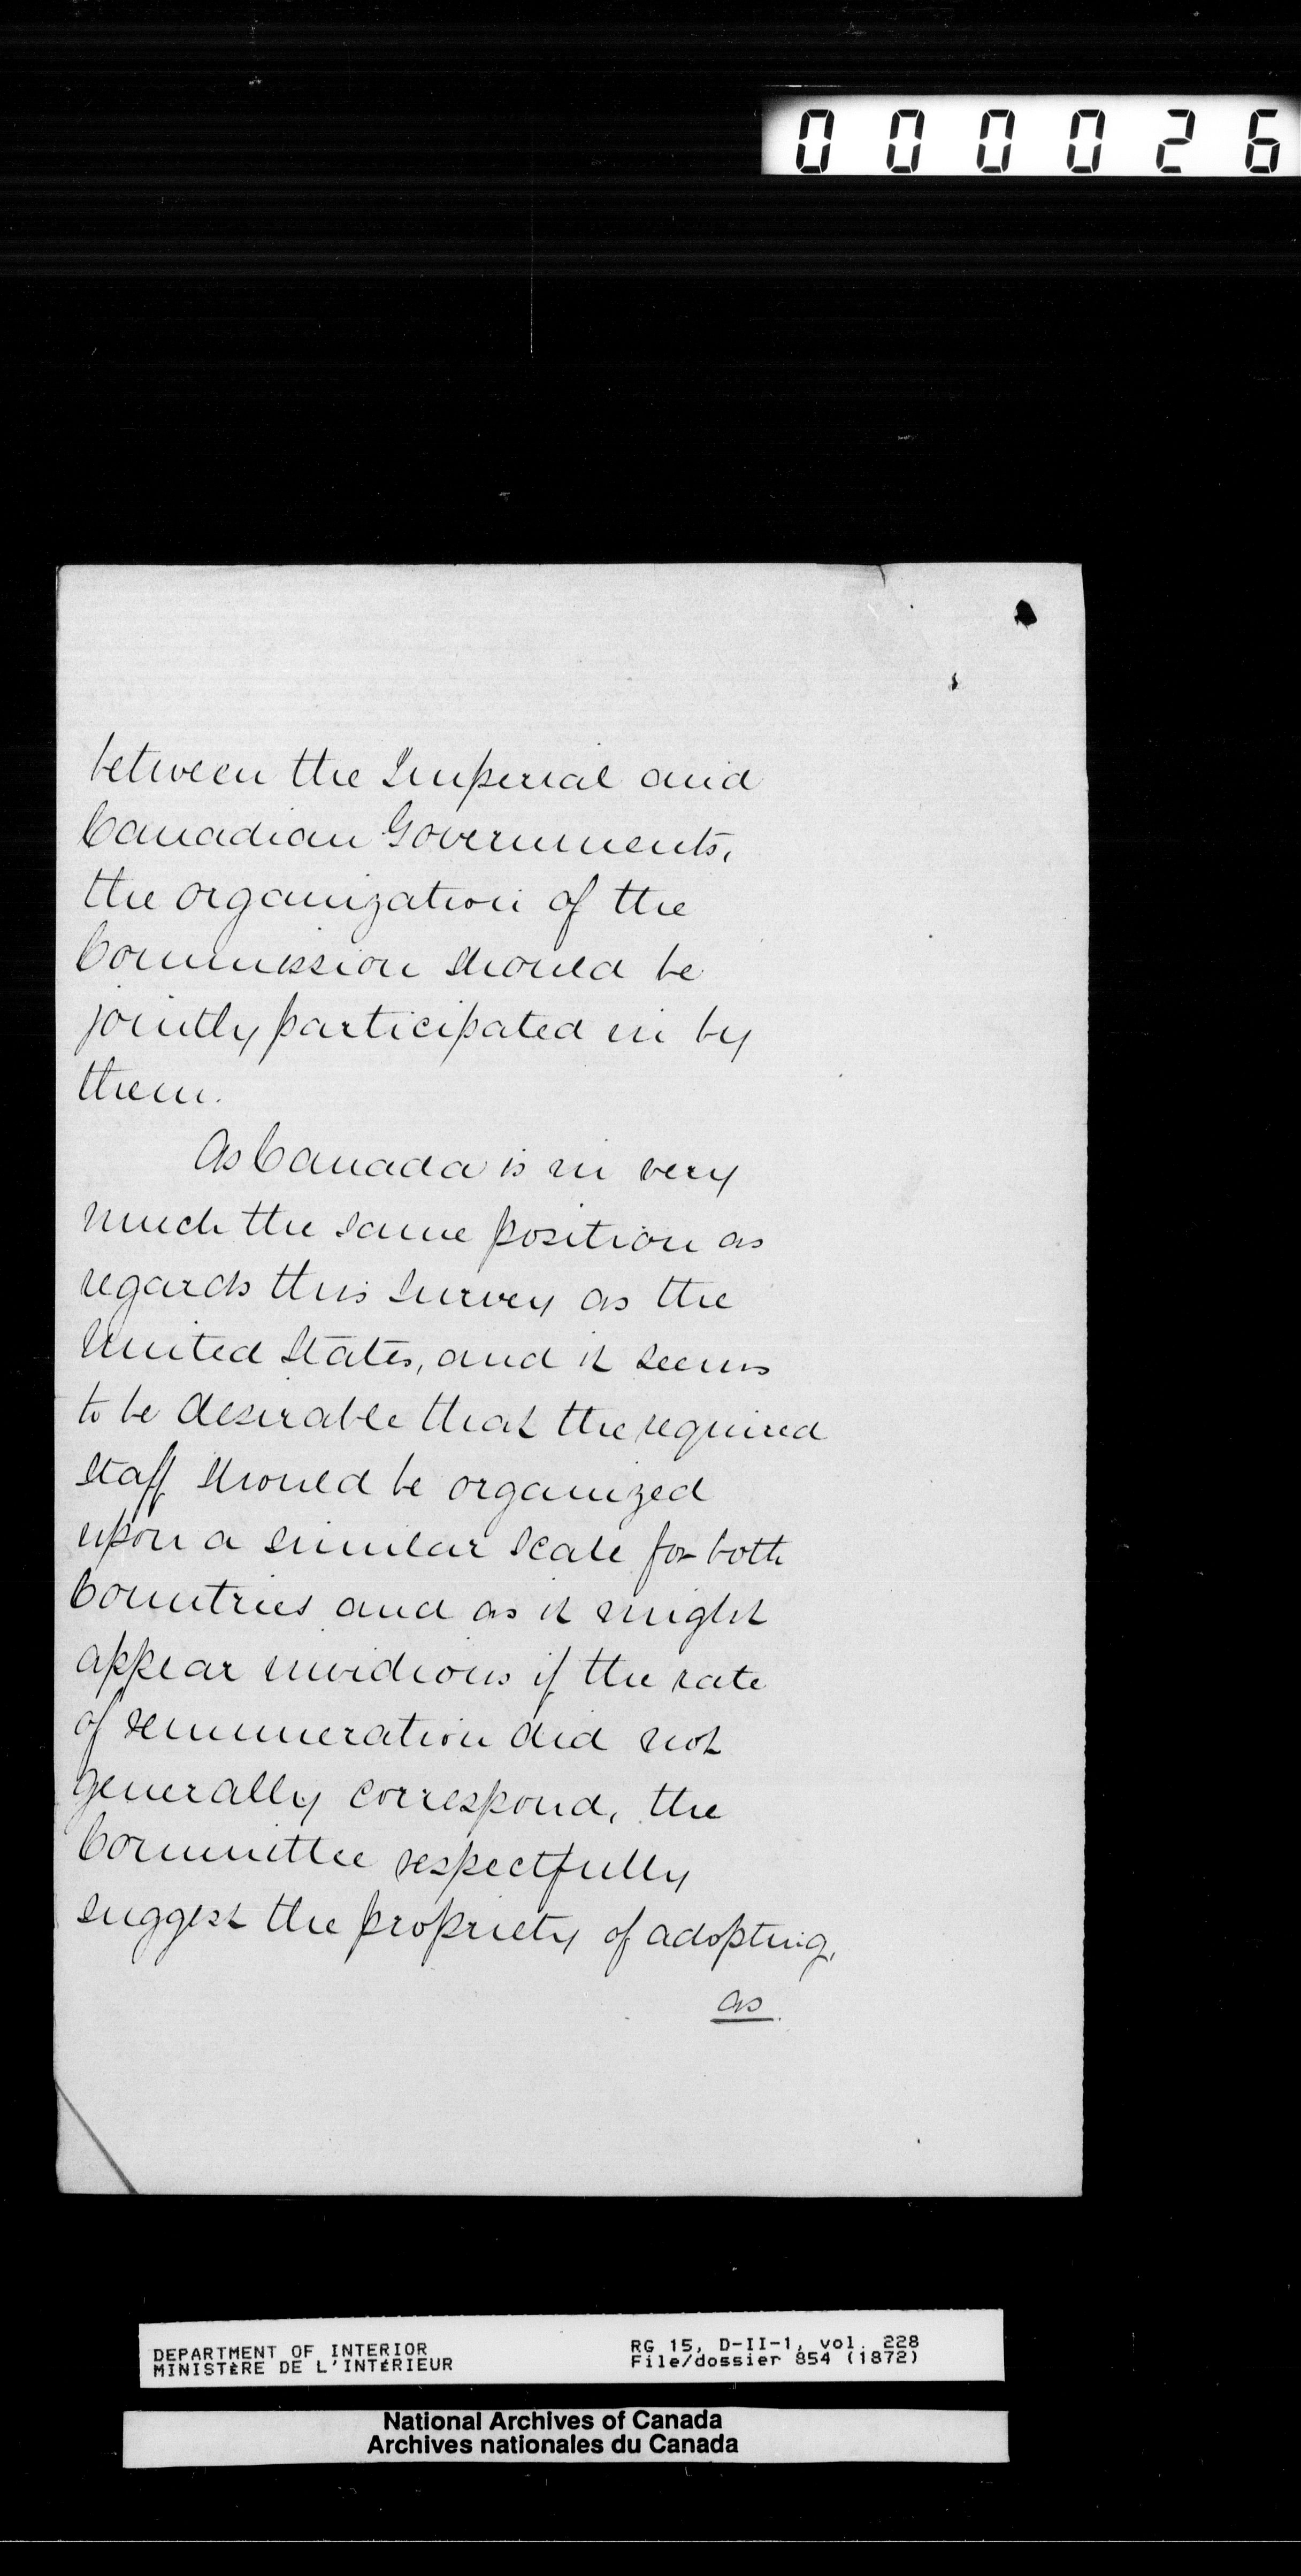 000026
between the Imperial and
Canadian Governments,
the organization of the
Commission should be
jointly participated in by
them.
As Canada is in very
much the same position as
regards this Survey as the
United States, and it seems
to be desirable that the required
Staff should be organized
upon a similar scale for both
Countries and as it might
appear invidious if the rate
of remuneration did not
generally correspond, the
Committee respectfully
suggest the propriety of adopting,
as
DEPARTMENT OF INTERIOR
MINISTÈRE DE L'INTÉRIEUR
RG 15, D-II-1, vol. 228
File/dossier 854 (1872)
National Archives of Canada
Archives nationales du Canada